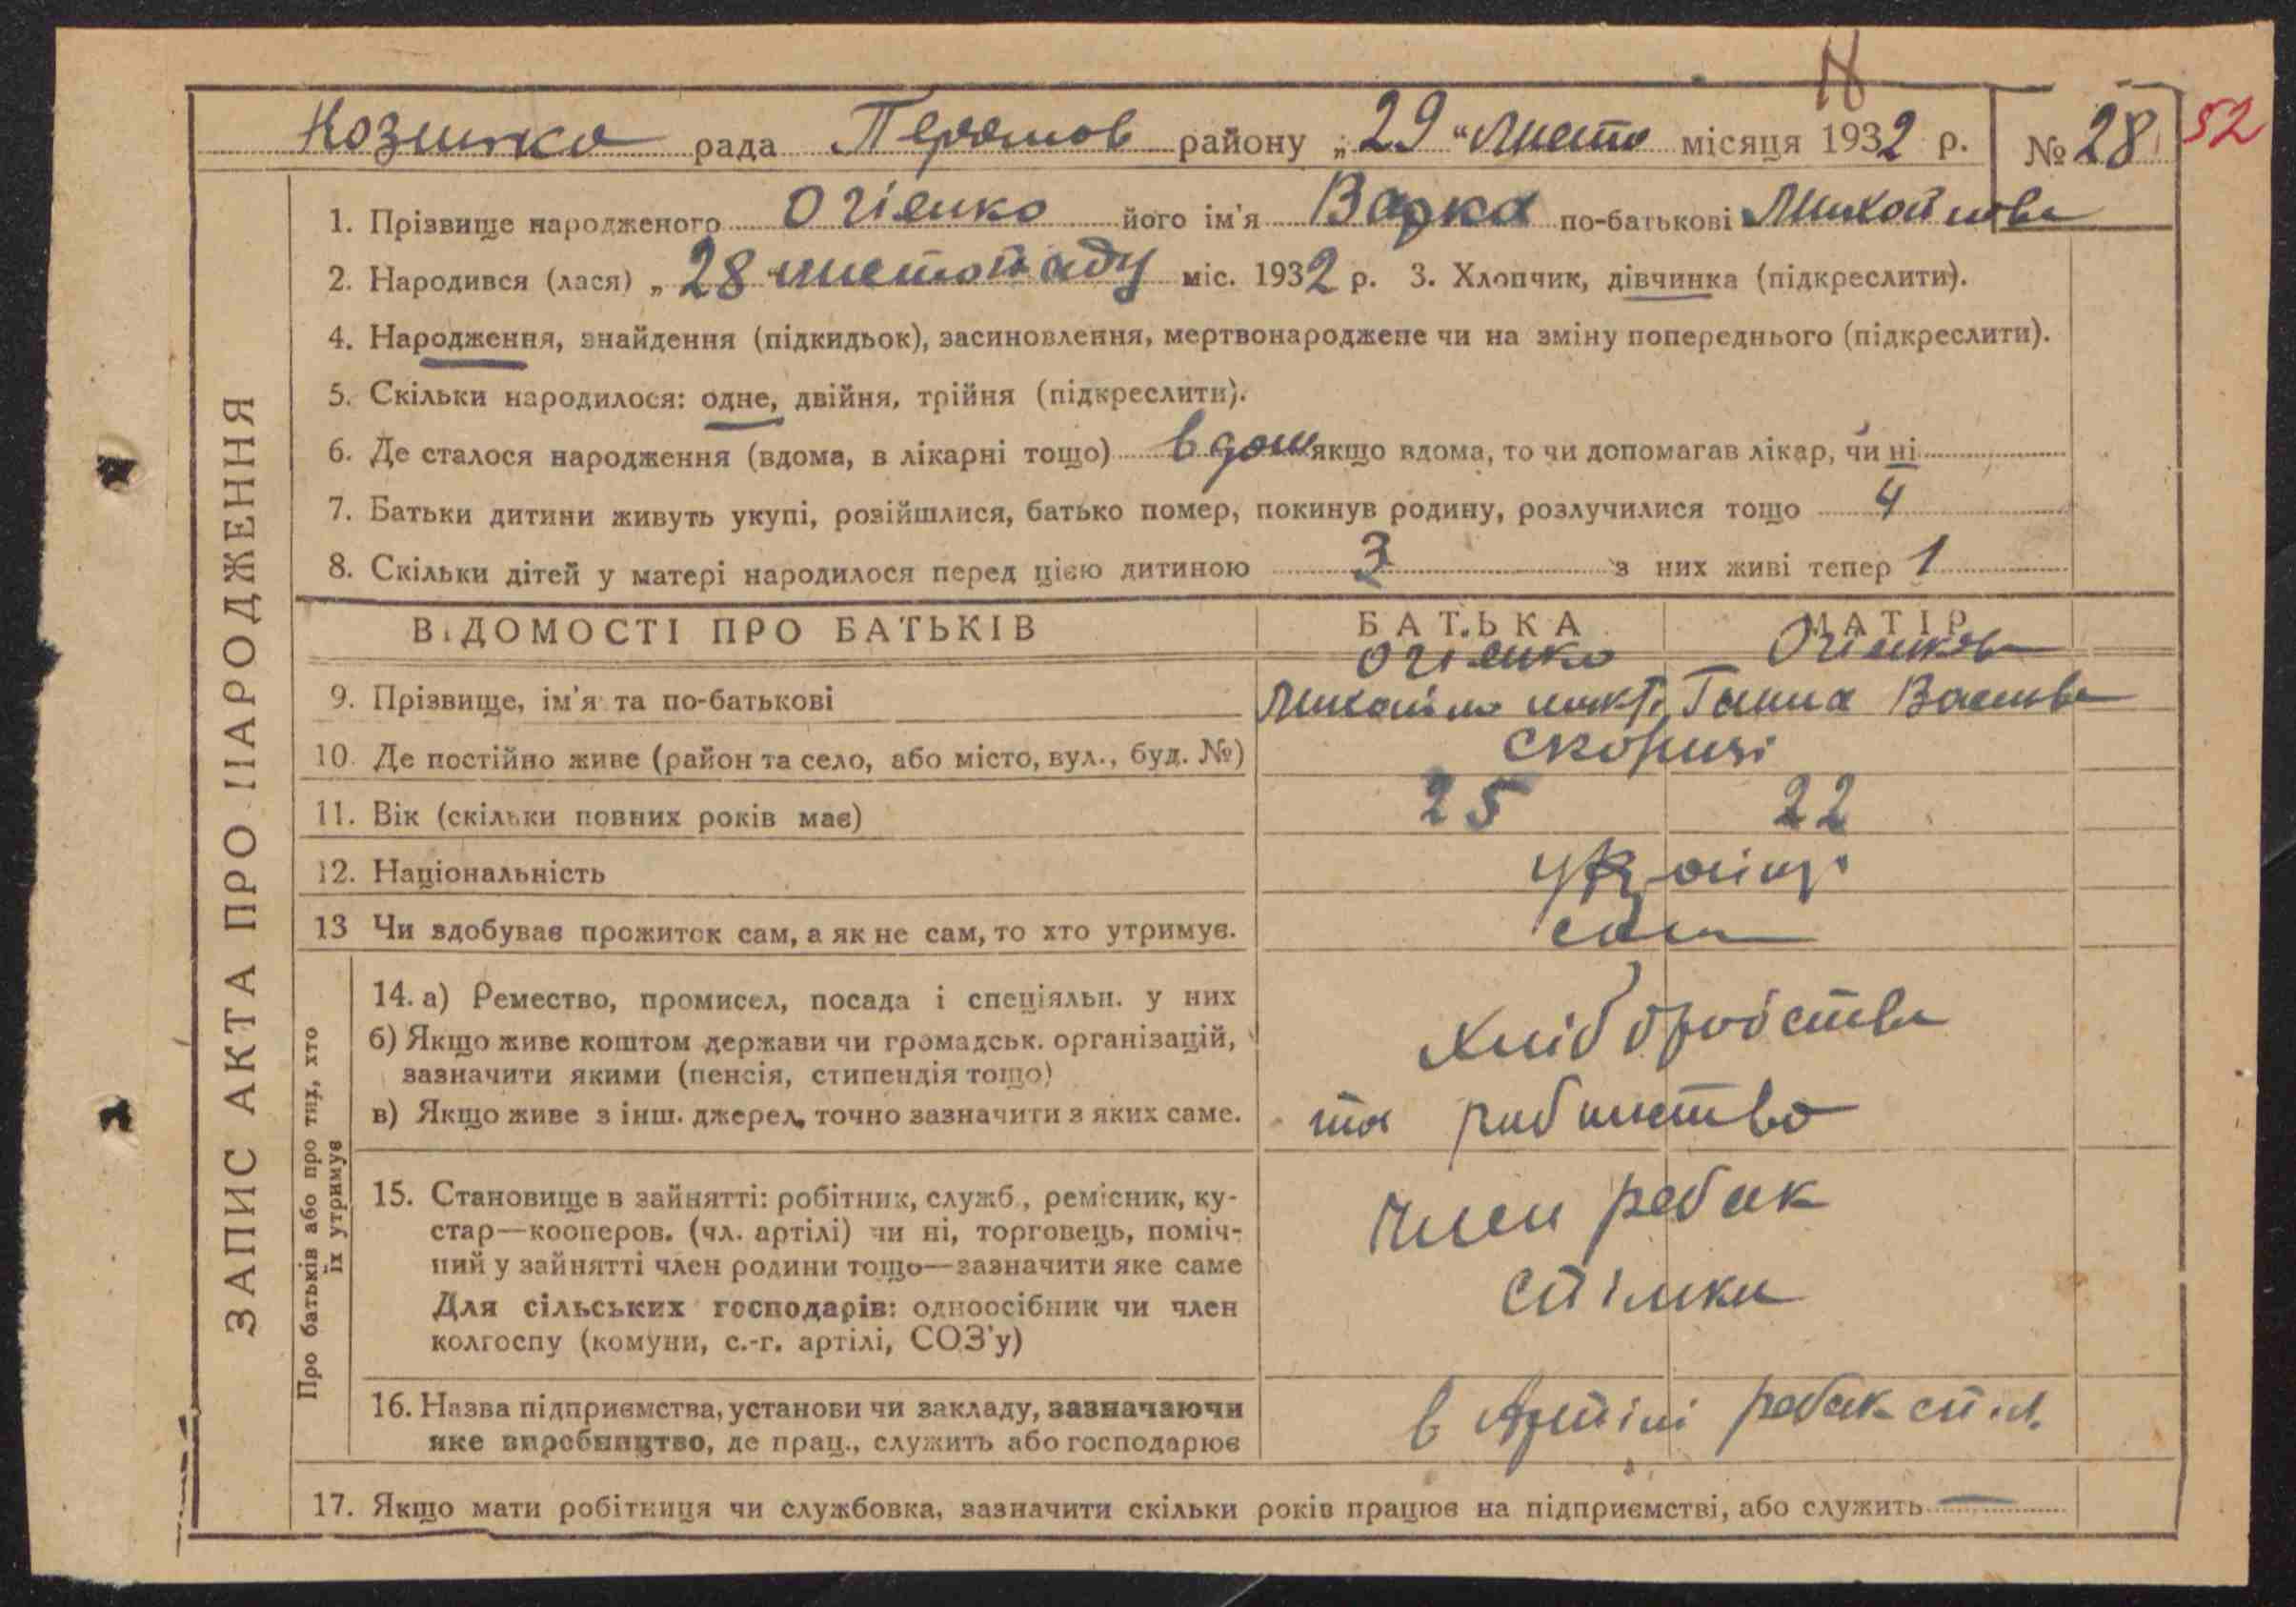 Козинска рада Переяслов району „29“ листо місяця 1932 р. № 28 52
1. Прізвище народженого Огієнко його ім'я Варка по-батькові Михайлова
2. Народився (лася) „28“ листопаду міс. 1932 р. 3. Хлопчик, дівчинка (підкреслити).
4. Народження, знайдення (підкидьок), засиновлення, мертвонароджене чи на зміну попереднього (підкреслити).
5. Скільки народилося: одне, двійня, трійня (підкреслити).
6. Де сталося народження (вдома, в лікарні тощо) вдом якщо вдома, то чи допомагав лікар, чи ні
7. Батьки дитини живуть укупі, розійшлися, батько помер, покинув родину, розлучилися тощо 4
8. Скільки дітей у матері народилося перед цією дитиною 3 з них живі тепер 1
ВІДОМОСТІ ПРО БАТЬКІВ БАТЬКА МАТІР
Огієнко Огієнкова
9. Прізвище, ім'я та по-батькові Михайло Ганна Василівна
10. Де постійно живе (район та село, або місто, вул., буд. №)
11. Вік (скільки повних років має) 25 22
12. Національність українці
13 Чи здобуває прожиток сам, а як не сам, то хто утримує. сам
14. а) Ремество, промисел, посада і спеціяльн. у них
б) Якщо живе коштом держави чи громадськ. організацій,
зазначити якими (пенсія, стипендія тощо)
в) Якщо живе з інш. джерел, точно зазначити з яких саме.
Хліборобства
та рибальство
15. Становище в зайнятті: робітник, служб., ремісник, ку-
стар—кооперов. (чл. артілі) чи ні, торговець, поміч-
ний у зайнятті член родини тощо—зазначити яке саме
Для сільських господарів: одноосібник чи член
колгоспу (комуни, с.-г. артілі, СОЗ'у)
Член рибак
спілки
16. Назва підприємства, установи чи закладу, зазначаючи
яке виробництво, де прац., служить або господарює
в Артілі рибак спіл.
17. Якщо мати робітниця чи службовка, зазначити скільки років працює на підприємстві, або служить —
ЗАПИС АКТА ПРО НАРОДЖЕННЯ
Про батьків або про тих, хто
їх утримує